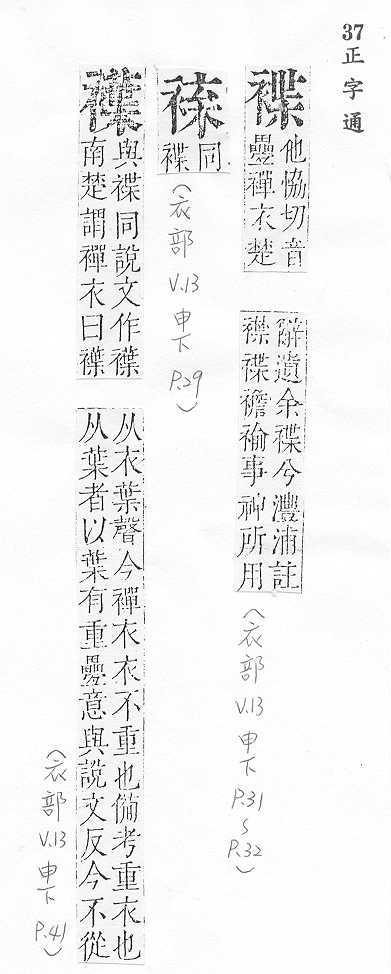 37 正字通
褋
他恊切音
疊襌衣楚
辭遺余褋兮灃浦註
襟褋襜褕事神所用
(衣部 V.13 申下 P.31~P.32)
同
褋
(衣部 V.13 申下 P.29)
與褋同說文作
南楚謂襌衣曰
从衣葉聲今襌衣衣不重也備考重衣也
从葉者以葉有重疊意與說文反今不從
(衣部 V.13 申下 P.41)